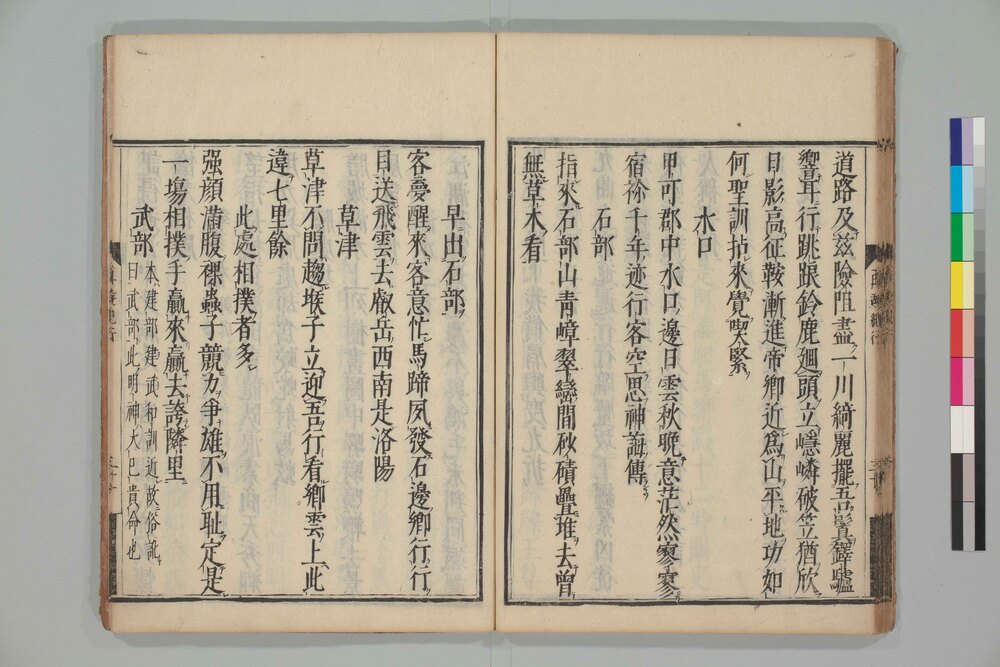 道路及茲險阻盡一川綺麗擺吾鬢鐸驢
響耳行跳踉鈴鹿廻頭立嶾嶙破笠猶欣
日影高征鞍漸進帝鄉近為山平地功如
何聖訓拈來覺喫緊
水口
甲可郡中水口邊日雲秋晚意茫然寥寥
宿祢千年迹行客空思神誨傳
石部
指來石部山青嶂翠巒間砂磧疊堆去曾
無草木看
早出石部
客憂醒來客意忙馬蹄夙發石邊鄉行行
目送飛雲去叡岳西南是洛陽
草津
草津不問趨堠子立迎吾行看鄉雲上此
違七里餘
此處相撲者多
强顔滿腹裸蟲子競力爭雄不用耻定是
一場相撲手贏來贏去誇隣里
武部
本建部建武和訓近故俗訛
曰武部此明神大巳貴命也